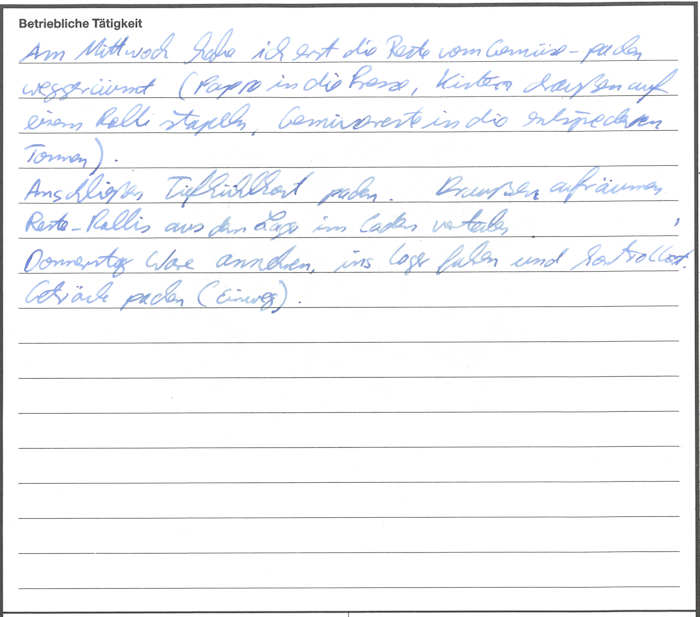 Betriebliche Tätigkeit
Am Mittwoch habe ich erst die Reste vom Gemüse-packen
weggeräumt (Pappe in die Presse, Kisten draußen auf
einem Rolli stapeln, Gemüsereste in die entsprechenden
Tonnen).
Anschließen Tiefkühlkost packen. Draußen aufräumen
Reste-Rollis aus dem Lager im Laden verteilen.
Donnerstag Ware annehmen, ins Lager fahren und kontrolliert.
Getränke packen (Einweg).